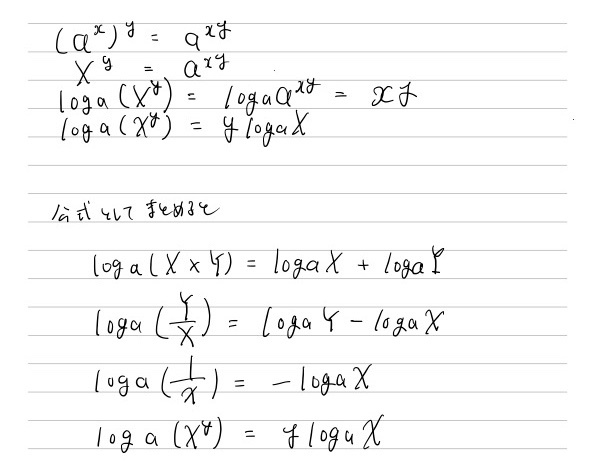 (a^x)^y = a^{xy}
X^y = a^{xy}
log a (X^y) = log a a^{xy} = xy
log a (X^y) = y log a X
公式としてまとめると
log a (X × Y) = log a X + log a Y
log a (Y/X) = log a Y − log a X
log a (1/X) = − log a X
log a (X^y) = y log a X